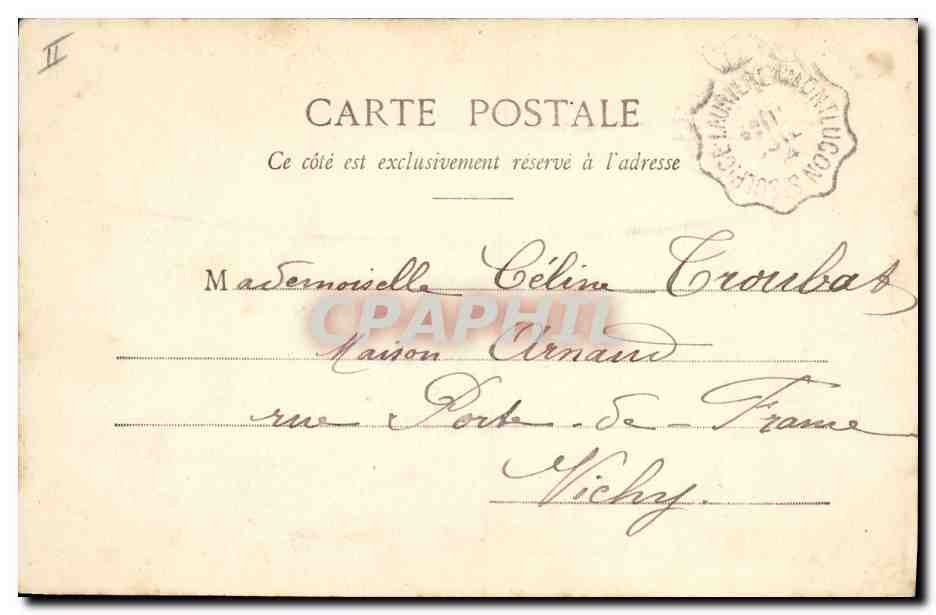 II
CARTE POSTALE
Ce côté est exclusivement réservé à l'adresse
MONTLUCON ST SULPICE LAURIERE
Mademoiselle Céline Troubat
CPAPHIL
Maison Arnaud
rue Porte-de-France
Vichy.